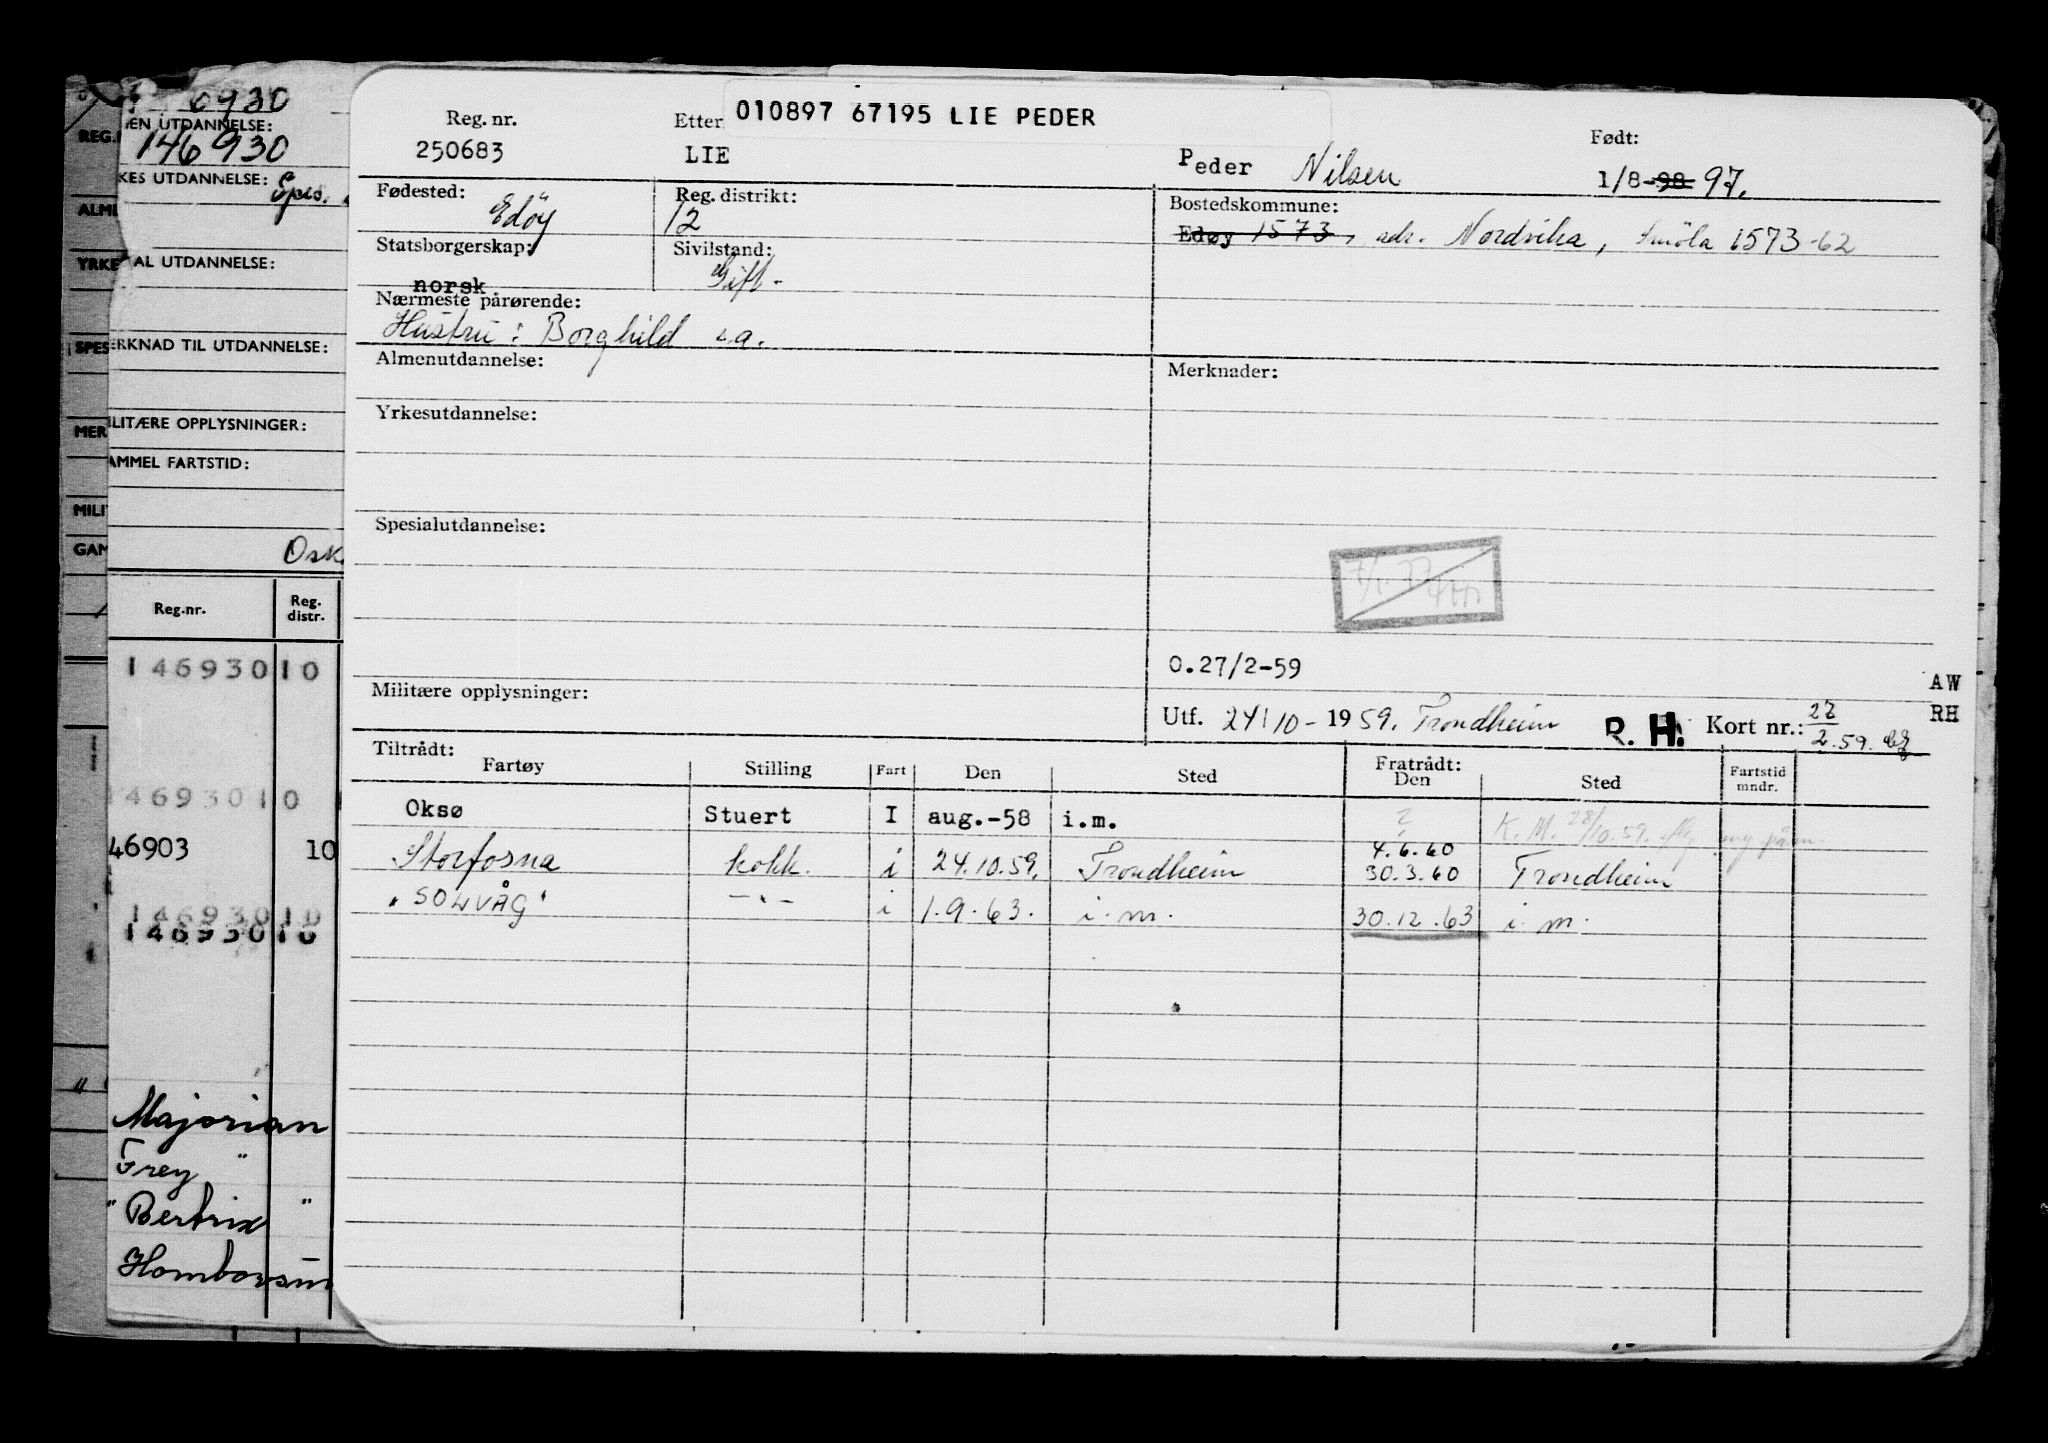 6930
EN UTDANNELSE:
146930
KES UTDANNELSE:
AL UTDANNELSE:
ERKNAD TIL UTDANNELSE:
LITÆRE OPPLYSNINGER:
AMMEL FARTSTID:
Osk
Reg.nr. Reg. distr.
146930 10
146930 10
46903 10
146930 10
146930 10
Majorian
Frey "
" Bertrix "
Homborsun
REG.
ALM
YRKE
SPES
MER
MILI
GAM
010897 67195 LIE PEDER
Reg. nr. Etter Født:
250683 LIE Peder Nilsen 1/8-98 97.
Fødested: Reg. distrikt: Bostedskommune:
Edöy 12 Edøy 1573, adr. Nordvika, Smöla 1573-62
Statsborgerskap: Sivilstand:
norsk Gift-
Nærmeste pårørende:
Hustru: Borghild s.a.
Almenutdannelse: Merknader:
Yrkesutdannelse:
Spesialutdannelse:
O.27/2-59
Militære opplysninger:
AW
Utf. 24/10-1959. Trondheim R. H. Kort nr.: 27/2.59. RH
Tiltrådt: Fratrådt:
Fartøy Stilling Fart Den Sted Den Sted Fartstid mndr.
Oksø Stuert I aug.-58 i.m. ? K.M. 28/10.59.
4.6.60
Storfosna kokk. i 24.10.59. Trondheim 30.3.60 Trondheim
"SOLVÅG" -"- i 1.9.63. i.m. 30.12.63 i.m.